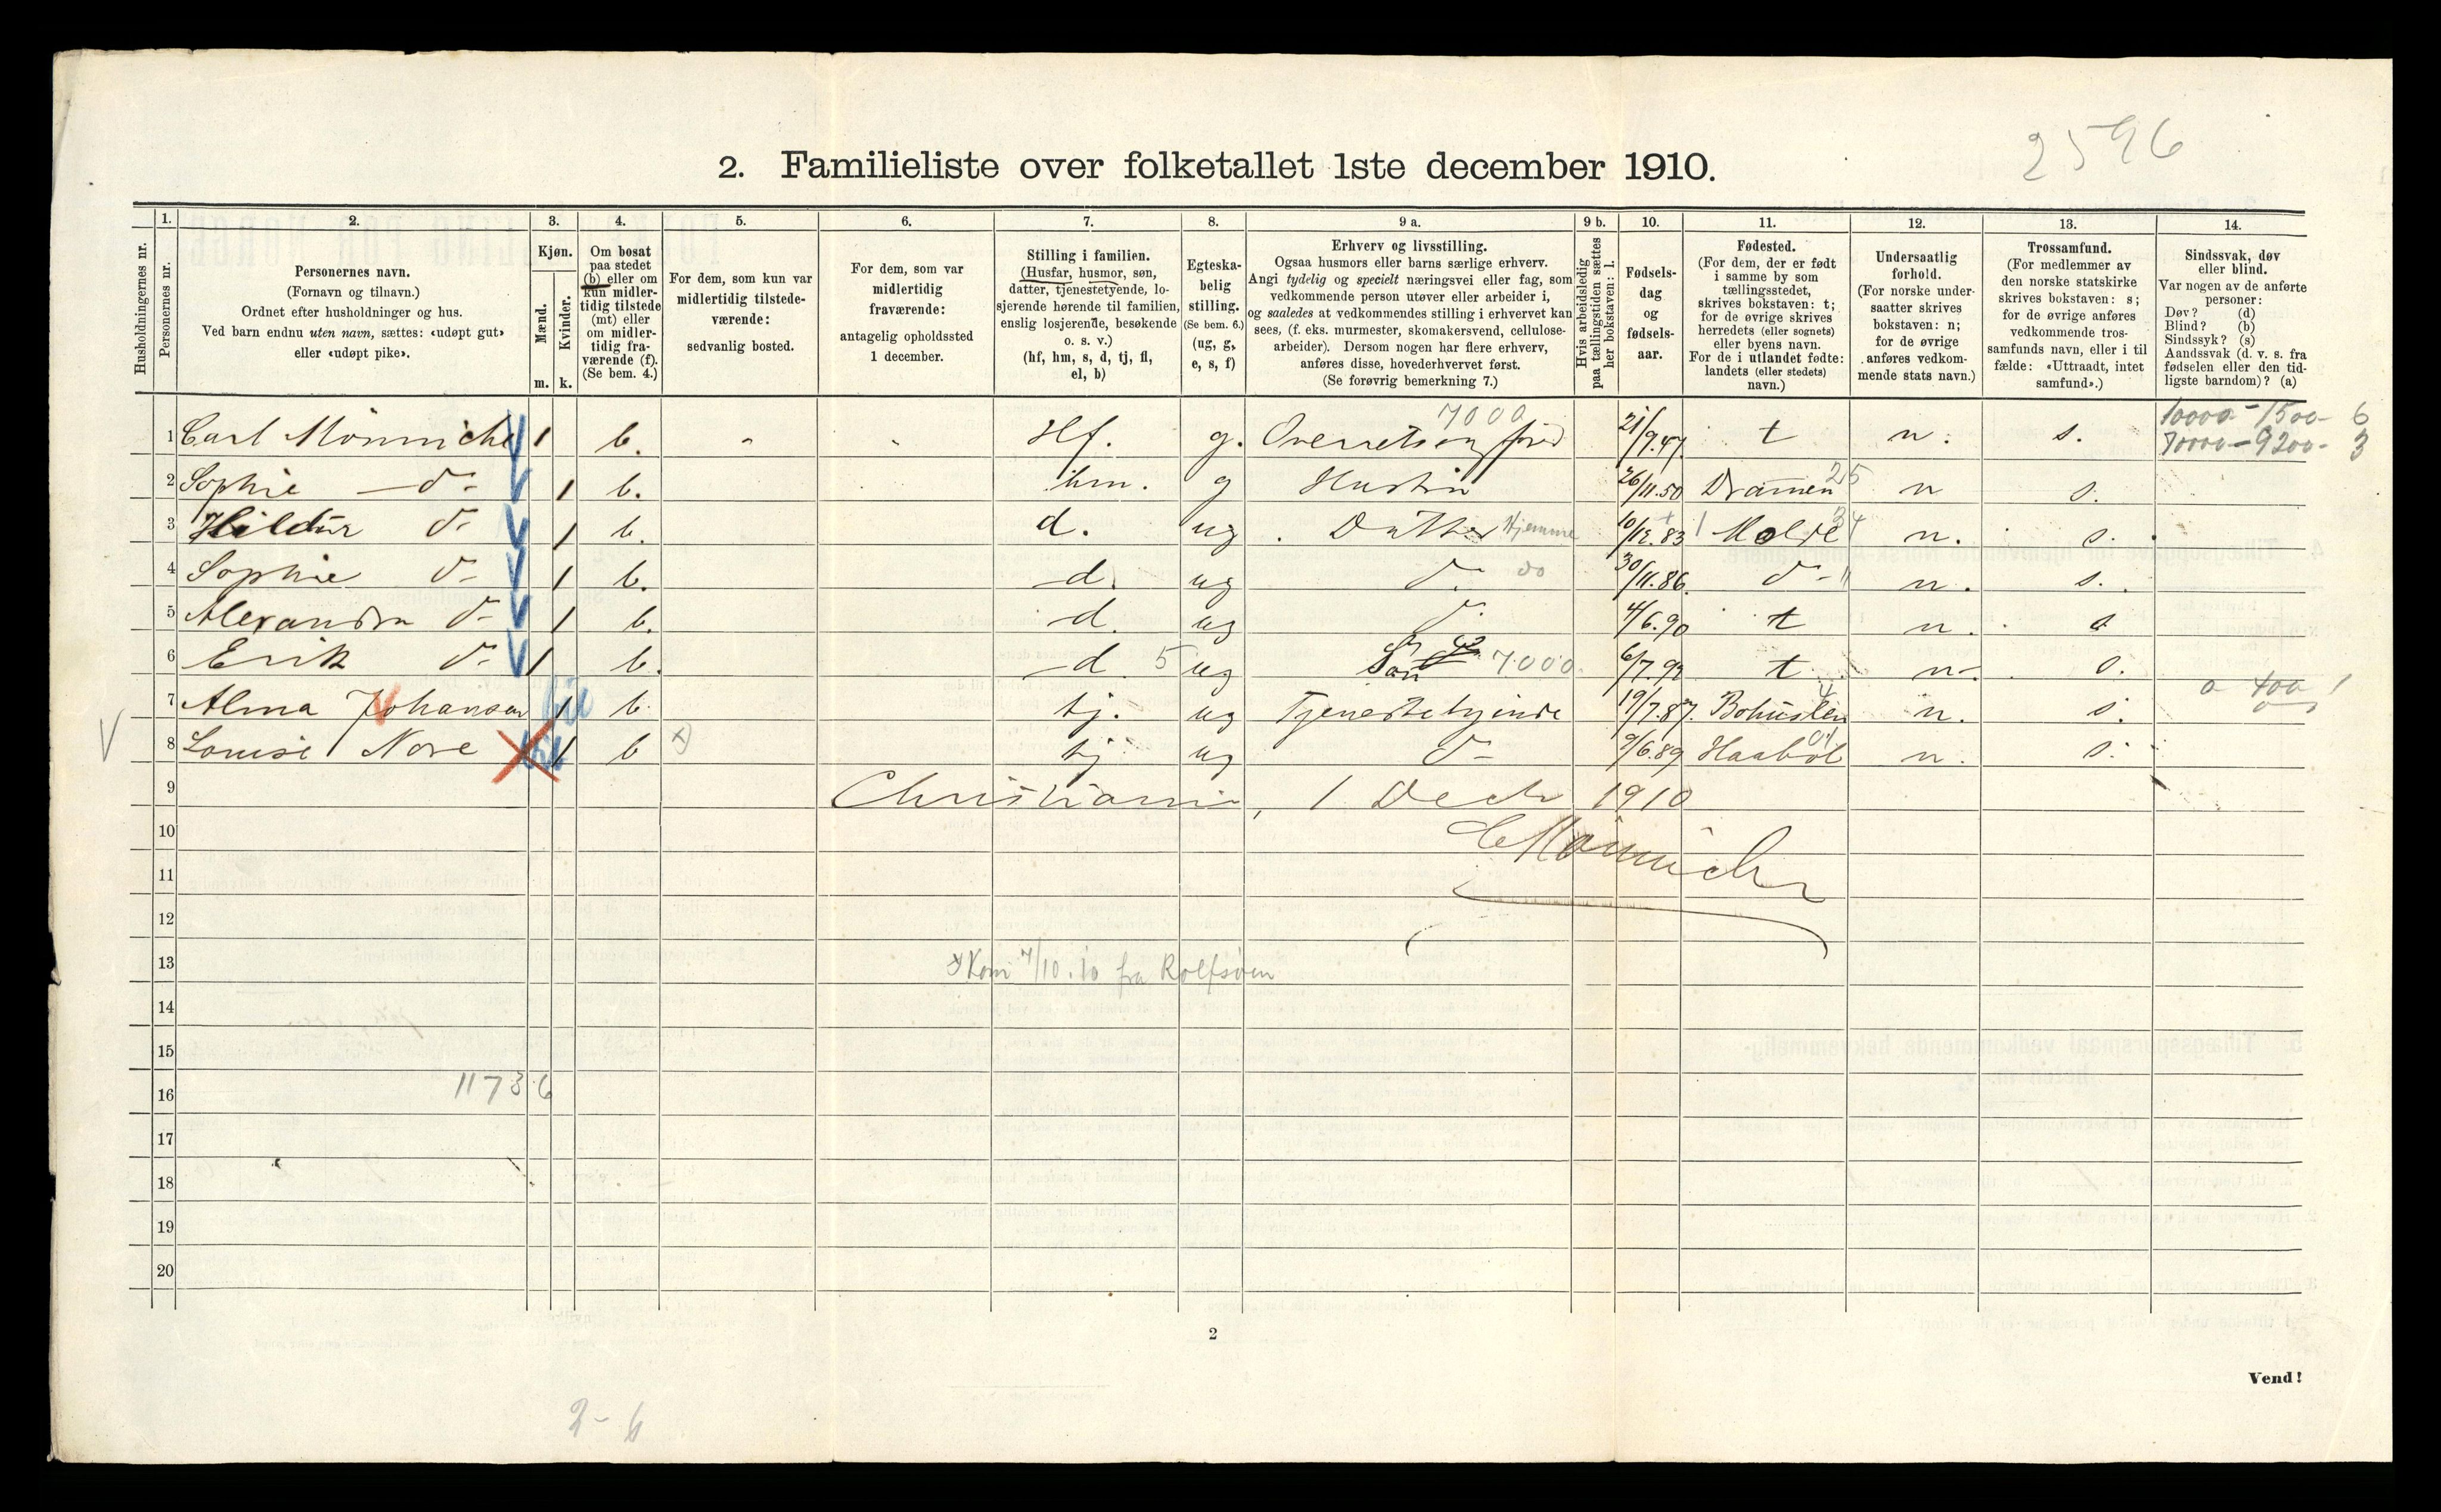 2596
2. Familieliste over folketallet 1ste december 1910.
Husholdningernes nr.
1. Personernes nr.
2. Personernes navn. (Fornavn og tilnavn.) Ordnet efter husholdninger og hus. Ved barn endnu uten navn, sættes: «udøpt gut» eller «udøpt pike».
3. Kjøn. Mænd. m. Kvinder. k.
4. Om bosat paa stedet (b) eller om kun midlertidig tilstede (mt) eller om midlertidig fraværende (f). (Se bem. 4.)
5. For dem, som kun var midlertidig tilstedeværende: sedvanlig bosted.
6. For dem, som var midlertidig fraværende: antagelig opholdssted 1 december.
7. Stilling i familien. (Husfar, husmor, søn, datter, tjenestetyende, losjerende hørende til familien, enslig losjerende, besøkende o. s. v.) (hf, hm, s, d, tj, fl, el, b)
8. Egteskabelig stilling. (Se bem. 6.) (ug, g, e, s, f)
9 a. Erhverv og livsstilling. Ogsaa husmors eller barns særlige erhverv. Angi tydelig og specielt næringsvei eller fag, som vedkommende person utøver eller arbeider i, og saaledes at vedkommendes stilling i erhvervet kan sees, (f. eks. murmester, skomakersvend, cellulosearbeider). Dersom nogen har flere erhverv, anføres disse, hovederhvervet først. (Se forøvrig bemerkning 7.)
9 b. Hvis arbeidsledig paa tællingstiden sættes her bokstaven: l.
10. Fødselsdag og fødselsaar.
11. Fødested. (For dem, der er født i samme by som tællingsstedet, skrives bokstaven: t; for de øvrige skrives herredets (eller sognets) eller byens navn. For de i utlandet fødte: landets (eller stedets) navn.)
12. Undersaatlig forhold. (For norske undersaatter skrives bokstaven: n; for de øvrige anføres vedkommende stats navn.)
13. Trossamfund. (For medlemmer av den norske statskirke skrives bokstaven: s; for de øvrige anføres vedkommende trossamfunds navn, eller i tilfælde: «Uttraadt, intet samfund».)
14. Sindssvak, døv eller blind. Var nogen av de anførte personer: Døv? (d) Blind? (b) Sindssyk? (s) Aandssvak (d. v. s. fra fødselen eller den tidligste barndom)? (a)
1 Carl Mönniche 1 b. Hf. g. 7000 21/9.47. t n. s. 10000 - 1500 - 6
70000 - 9200 - 3
2 Sophie — d- 1 b. hm. g Hustru 26/11.50 Dramen 25 n s.
3 Hildur d- 1 b. d. ug Datter Hjemme 10/12.83 Molde 34 n. s.
4 Sophie d- 1 b. d. ug d. do 30/11.86. d- " n. s.
5 Alexandra d- 1 b. d. ug d. 4/6.90 t n. s
6 Erik d- 1 b. d 5 ug Søn 7000 6/7.92 t n- s.
7 Alma Johansen 1 b. tj. ug Tjenestetyende 19/7.87. Bohuslen n. s. 0 400 1
8 Louise Nore 1 b x) tj ug d- 9/6.89 Haabøl 04 n. s.
9 Christiania, 1 Decbr 1910
10 CMönniche
11
12
13 x) Kom 7/10.10 fra Rolfsøen
14
15
16 11736
17
18
19
20
2
Vend!
2 - 6